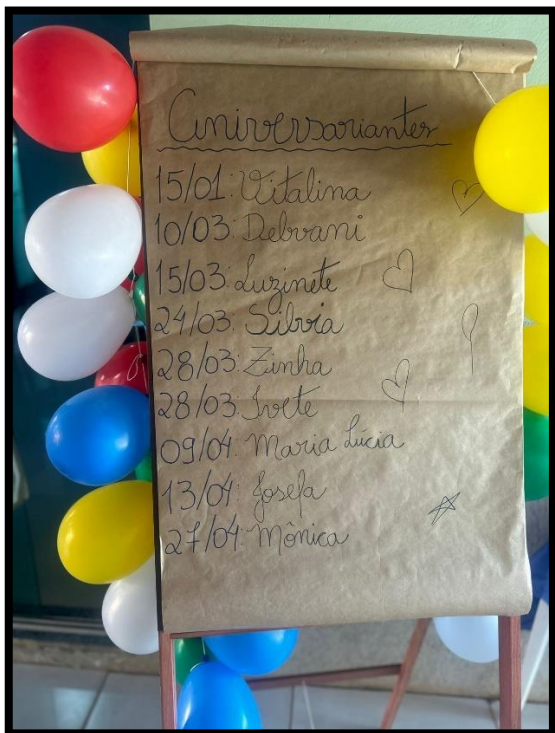 Aniversariantes
15/01: Vitalina
10/03: Debvani
15/03: Luzinete
24/03: Silvia
28/03: Zinha
28/03: Ivete
09/04: Maria Lúcia
13/04: Josefa
27/04: Mônica